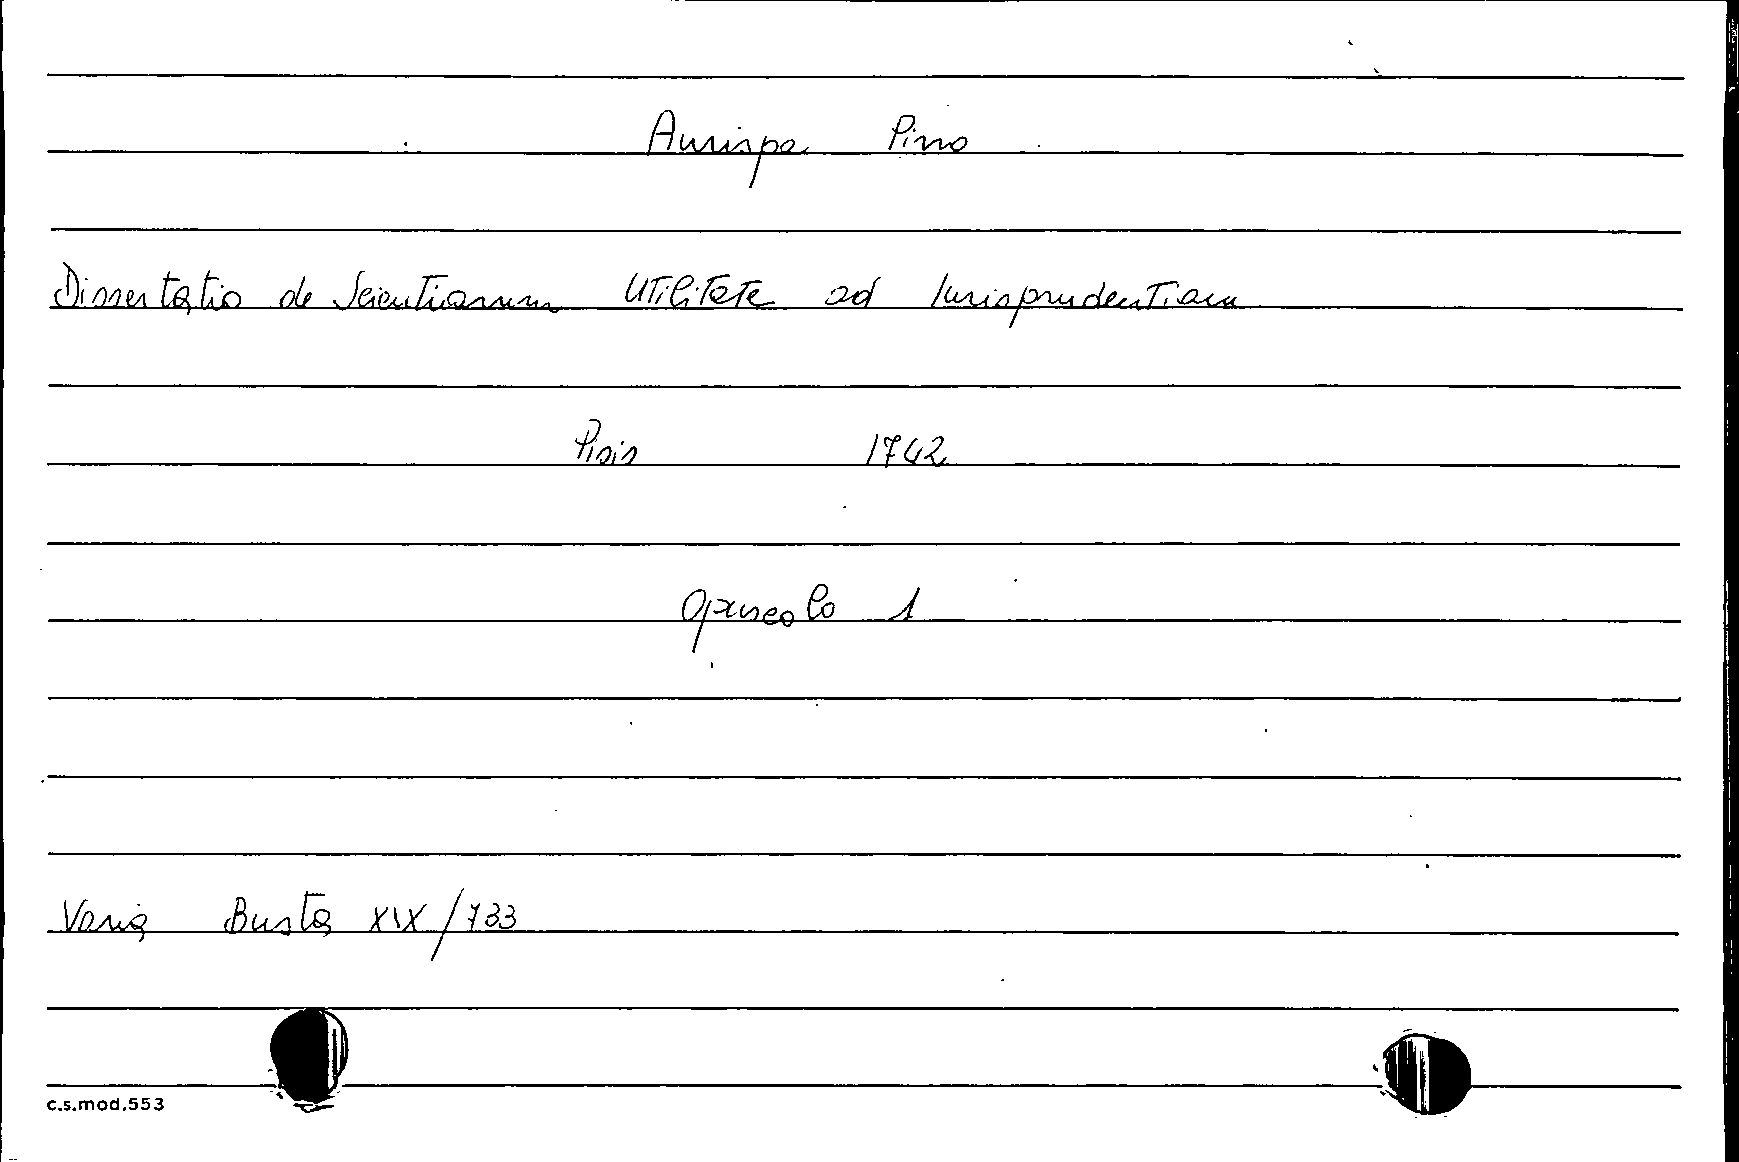 Aurispa Pirro
Dissertatio de Scientiarum Utilitate ad Iurisprudentiam
Pisis 1742
Opuscolo 1
Varia Busta XIX/733
c.s.mod.553